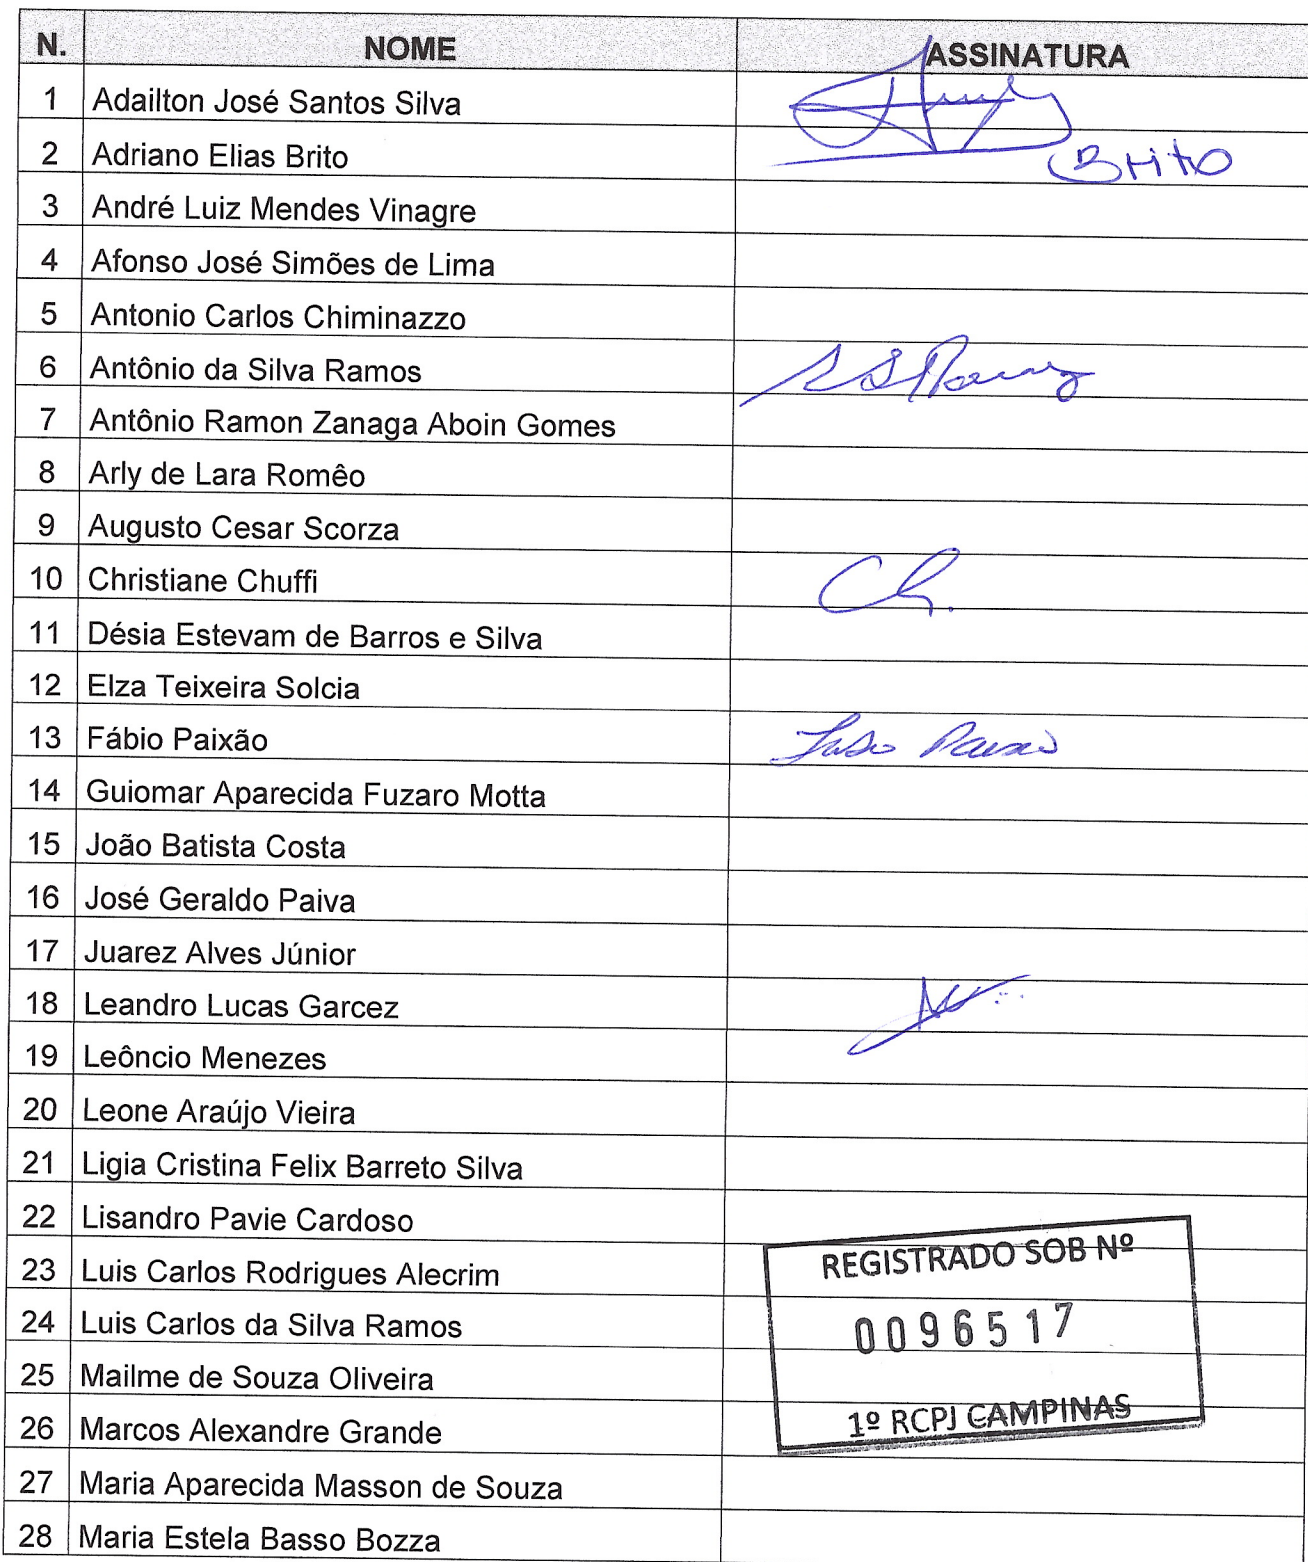 N. NOME ASSINATURA
1 Adailton José Santos Silva
2 Adriano Elias Brito Brito
3 André Luiz Mendes Vinagre
4 Afonso José Simões de Lima
5 Antonio Carlos Chiminazzo
6 Antônio da Silva Ramos
7 Antônio Ramon Zanaga Aboin Gomes
8 Arly de Lara Romêo
9 Augusto Cesar Scorza
10 Christiane Chuffi
11 Désia Estevam de Barros e Silva
12 Elza Teixeira Solcia
13 Fábio Paixão
14 Guiomar Aparecida Fuzaro Motta
15 João Batista Costa
16 José Geraldo Paiva
17 Juarez Alves Júnior
18 Leandro Lucas Garcez
19 Leôncio Menezes
20 Leone Araújo Vieira
21 Ligia Cristina Felix Barreto Silva
22 Lisandro Pavie Cardoso
REGISTRADO SOB Nº
23 Luis Carlos Rodrigues Alecrim
24 Luis Carlos da Silva Ramos
0096517
25 Mailme de Souza Oliveira
26 Marcos Alexandre Grande
1º RCPJ CAMPINAS
27 Maria Aparecida Masson de Souza
28 Maria Estela Basso Bozza